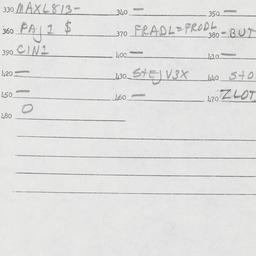 330 MAXL813- 340 - 350 -
360 PAj1 $ 370 PRADL=PRODL 380 -BUT
390 CIN1 400 - 410 -
420 - 430 StEjV3X 440 StO
450 - 460 - 470 ZLOT
480 O